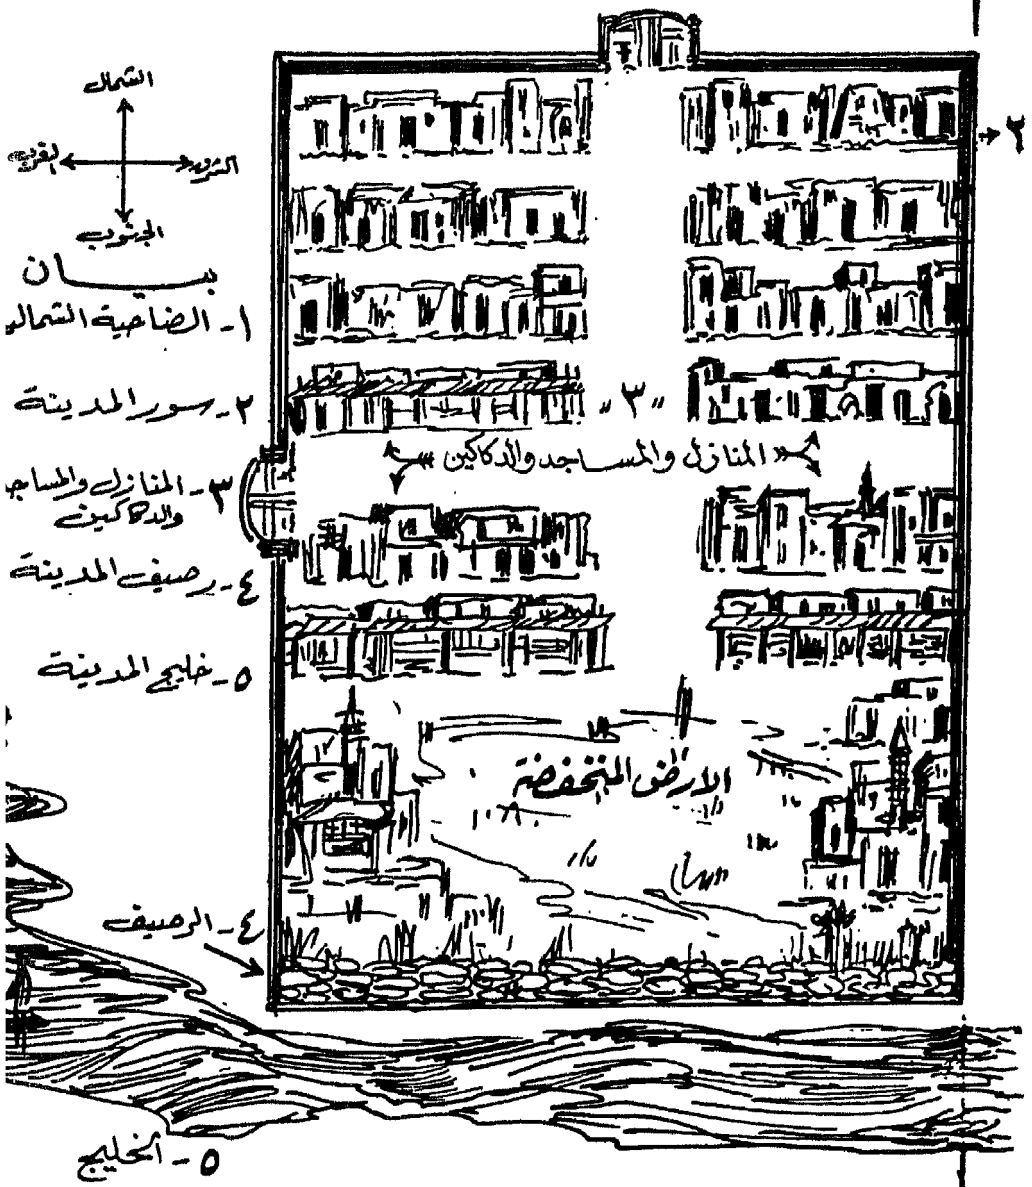 الشمال
الغرب
الشرق
الجنوب
بيــان
١- الضاحية الشمالي
٢- سور المدينة
٣- المنازل والمساجد
والدكاكين
٤- رصيف المدينة
٥- خليج المدينة
٢
"٣"
«المنازل والمساجد والدكاكين»
الارض المنخفضة
٤- الرصيف
٥- الخليج